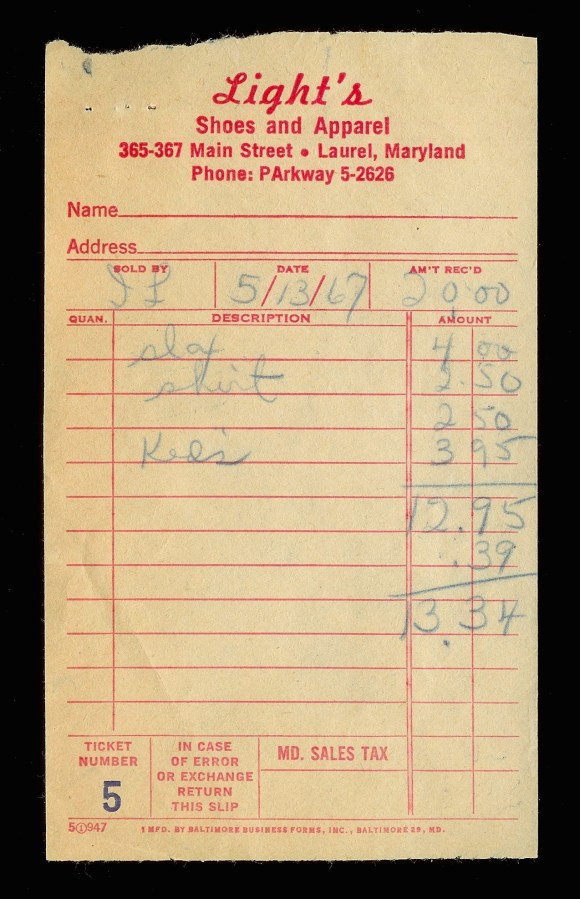 Light's
Shoes and Apparel
365-367 Main Street • Laurel, Maryland
Phone: PArkway 5-2626
Name
Address
SOLD BY DATE AM'T REC'D
5/13/67 20.00
QUAN. DESCRIPTION AMOUNT
slax 4 00
shirt 2.50
2 50
Ked's 3 95
12.95
.39
13.34
TICKET NUMBER
5
IN CASE
OF ERROR
OR EXCHANGE
RETURN
THIS SLIP
MD. SALES TAX
5①947 MFD. BY BALTIMORE BUSINESS FORMS, INC., BALTIMORE 29, MD.